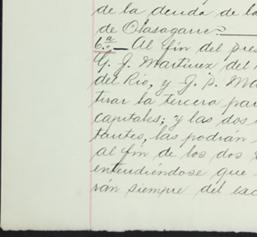 de la deuda de la
de Olasagarre.
6.ª— Al fin del pres
G. J. Martinez del
del Rio, y J. P. Ma
tirar la tercera par
capitales; y las dos
tantes, las podrán
al fin de los dos
entendiéndose que
rán siempre del exc